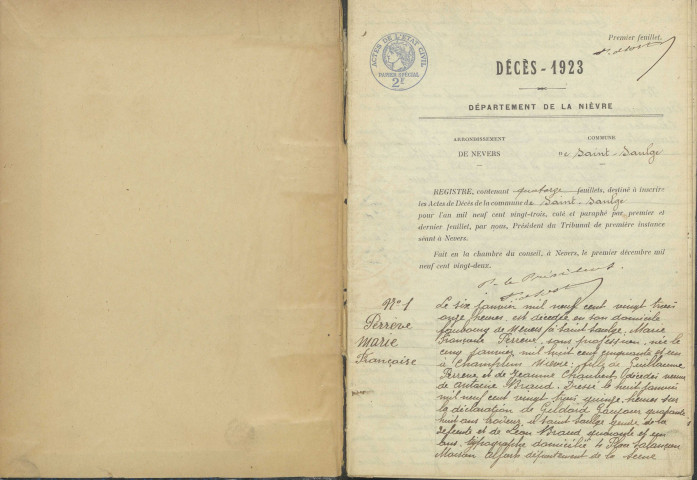 Premier feuillet.
ACTES DE L'ETAT CIVIL
PAPIER SPECIAL
2F
DÉCÈS - 1923
DÉPARTEMENT DE LA NIÈVRE
ARRONDISSEMENT
DE NEVERS
COMMUNE
DE Saint-Saulge
REGISTRE, contenant quatorze feuillets, destiné à inscrire
les Actes de Décès de la commune de Saint-Saulge
pour l'an mil neuf cent vingt-trois, coté et paraphé par premier et
dernier feuillet, par nous, Président du Tribunal de première instance
séant à Nevers.
Fait en la chambre du conseil, à Nevers, le premier décembre mil
neuf cent vingt-deux.
Pr le Président
N° 1
Perrève
Marie
Françoise
Le six janvier mil neuf cent vingt trois
onze heures, est décédée en son domicile
faubourg de Nevers à Saint-Saulge, Marie
Françoise Perrève, sans profession, née le
cinq janvier mil huit cent cinquante et un
à Champlin Nièvre, fille de Guillaume
Perrève et de Jeanne Chaubert décédés veuve
de Antoine Braud. Dressé le huit janvier
mil neuf cent vingt trois quinze heures sur
la déclaration de Gildard quarante
huit ans à Saint Saulge gendre de la
défunte et de Léon Braud quarante et un
ans, typographe domicilié
Maison Alfort département de la Seine